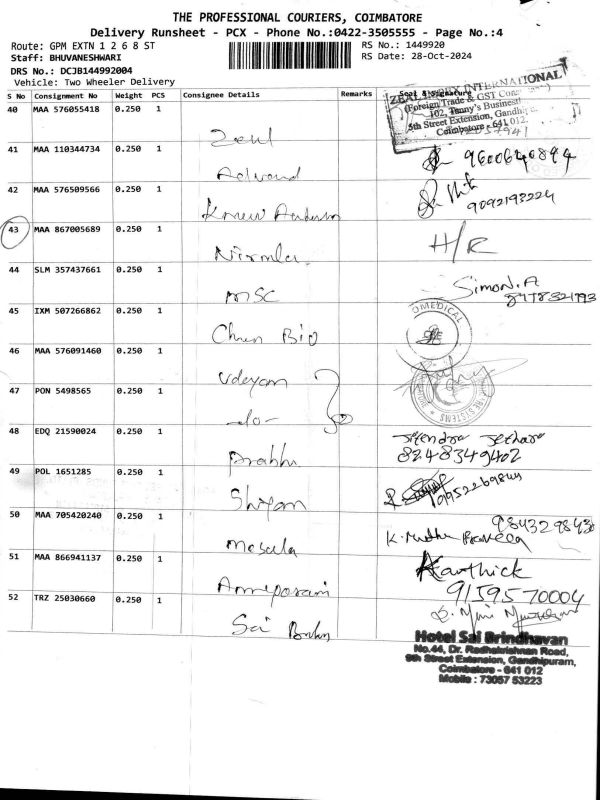 THE PROFESSIONAL COURIERS, COIMBATORE
Delivery Runsheet - PCX - Phone No.:0422-3505555 - Page No.:4
Route: GPM EXTN 1 2 6 8 ST
RS No.: 1449920
Staff: BHUVANESHWARI
RS Date: 28-Oct-2024
DRS No.: DCJB144992004
Vehicle: Two Wheeler Delivery
S No Consignment No Weight PCS Consignee Details Remarks Seal & Signature
ZEAL IMPEX INTERNATIONAL
(Foreign Trade & GST
102, Tanny's Business
5th Street Extension, Gandhi
Coimbatore - 641 012.
40 MAA 576055418 0.250 1
Zeal
41 MAA 110344734 0.250 1 9600640894
42 MAA 576509566 0.250 1
9092193224
43 MAA 867005689 0.250 1 H/R
Nirmla
44 SLM 357437661 0.250 1 Simon.A
MSC
45 IXM 507266862 0.250 1
OMEDICAL
Chen Bio
46 MAA 576091460 0.250 1
Udeyam
47 PON 5498565 0.250 1
SYSTEMS
-do-
48 EDQ 21590024 0.250 1 Jitendra
8248349402
Prabhu
49 POL 1651285 0.250 1
9952269844
Shyam
50 MAA 705420240 0.250 1
K. Muthu
Masala
51 MAA 866941137 0.250 1 Karthick
9159570004
52 TRZ 25030660 0.250 1
Sai
Hotel Sai Brindhavan
No.44, Dr. Radhakrishnan Road,
9th Street Extension, Gandhipuram,
Coimbatore - 641 012
Mobile : 73057 53223